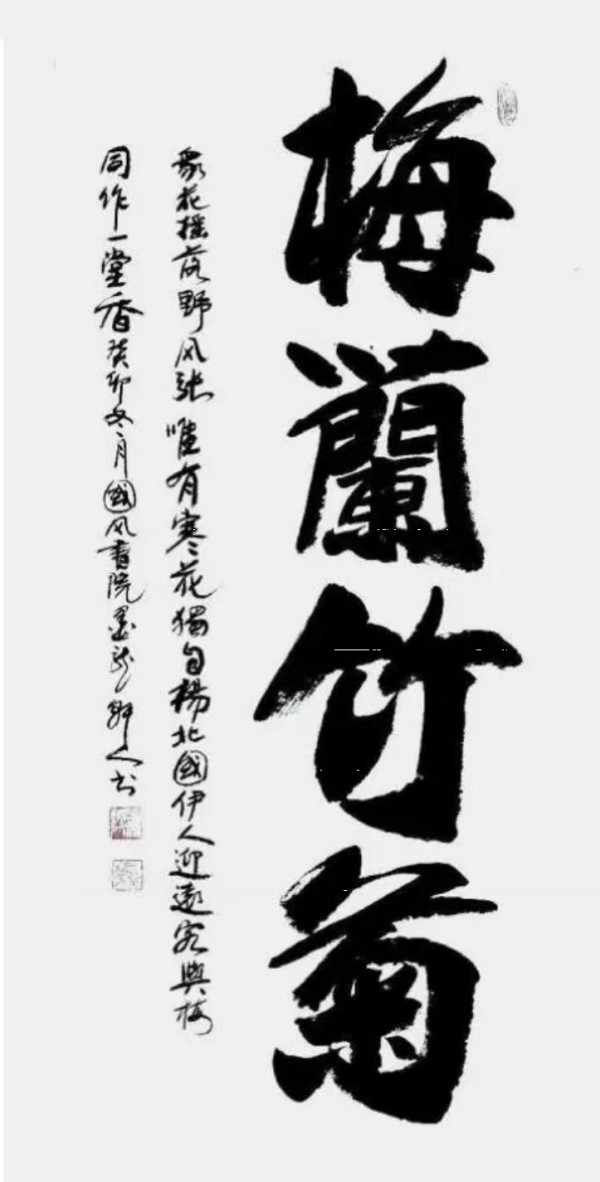 梅蘭竹菊
眾花摇落野风张唯有寒花獨自楊北國伊人迎遠客與梅
同作一堂香癸卯冬月國风書院墨龙野人书